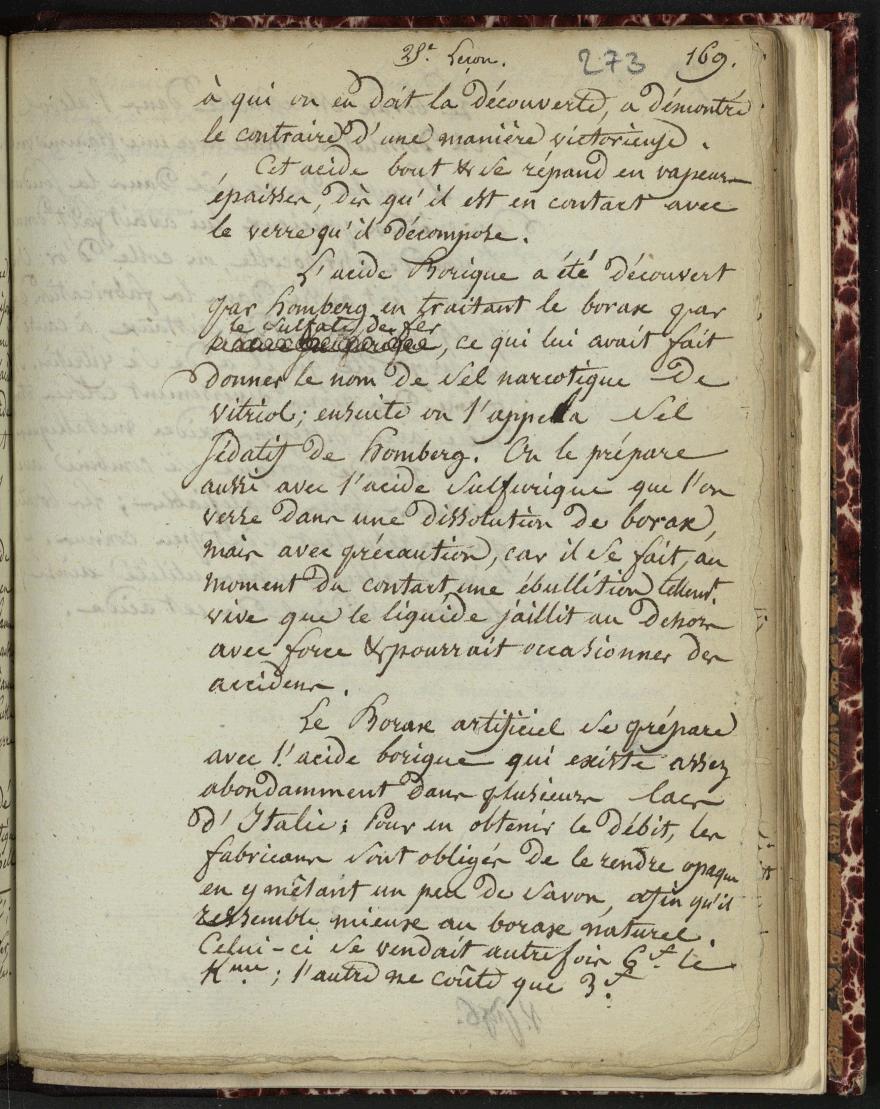 28.e Leçon. 273 169.
à qui on en doit la découverte, a démontré
le contraire d'une manière victorieuse.
Cet acide bout & se répand en vapeurs
épaisses, dès qu'il est en contact avec
le verre qu'il décompose.
L'acide Borique a été découvert
par homberg en traitant le borax par
le sulfate de fer
, ce qui lui avait fait
donner le nom de sel narcotique de
vitriol; ensuite on l'appella sel
sédatif de homberg. On le prépare
aussi avec l'acide sulfurique que l'on
verse dans une dissolution de borax,
mais avec précaution, car il se fait, au
moment du contact, une ébullition tellemt.
vive que le liquide jaillit au dehors
avec force & pourrait occasionner des
accidens.
Le Borax artificiel se prépare
avec l'acide borique qui existe assez
abondamment dans plusieurs lacs
d'Italie; Pour en obtenir le débit, les
fabricans sont obligés de le rendre opaque
en y mêlant un peu de savon, afin qu'il
ressemble mieux au borax naturel
Celui-ci se vendait autrefois 6.f le
K.me; l'autre ne coûte que 3.f